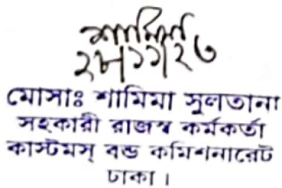 শামিমা
২৮/১১/২৩
মোসাঃ শামিমা সুলতানা
সহকারী রাজস্ব কর্মকর্তা
কাস্টমস্ বন্ড কমিশনারেট
ঢাকা।